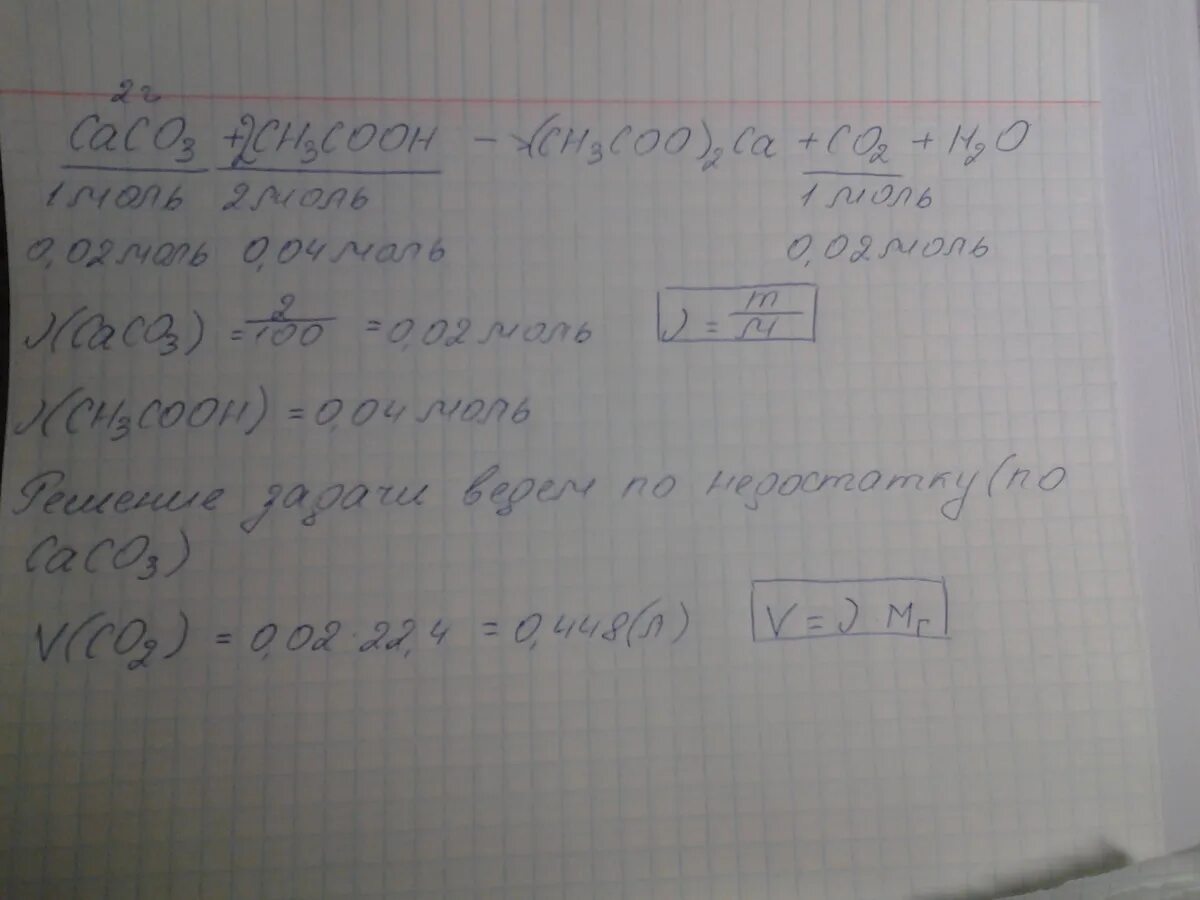 2 г
CaCO₃ + 2CH₃COOH → (CH₃COO)₂Ca + CO₂ + H₂O
1 моль 2 моль 1 моль
0,02 моль 0,04 моль 0,02 моль
ν(CaCO₃) = 2/100 = 0,02 моль ν = m/M
ν(CH₃COOH) = 0,04 моль
Решение задачи ведем по недостатку (по
CaCO₃)
V(CO₂) = 0,02·22,4 = 0,448(л) V = ν · Mr